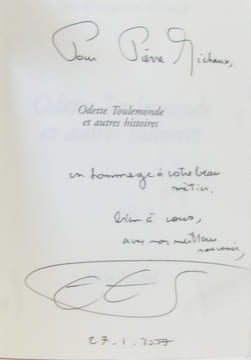 Pour Pierre Michaux,
Odette Toulemonde
et autres histoires
en hommage à votre beau
métier,
bien à vous,
avec nos meilleurs
souvenirs,
EES
27.1.2007